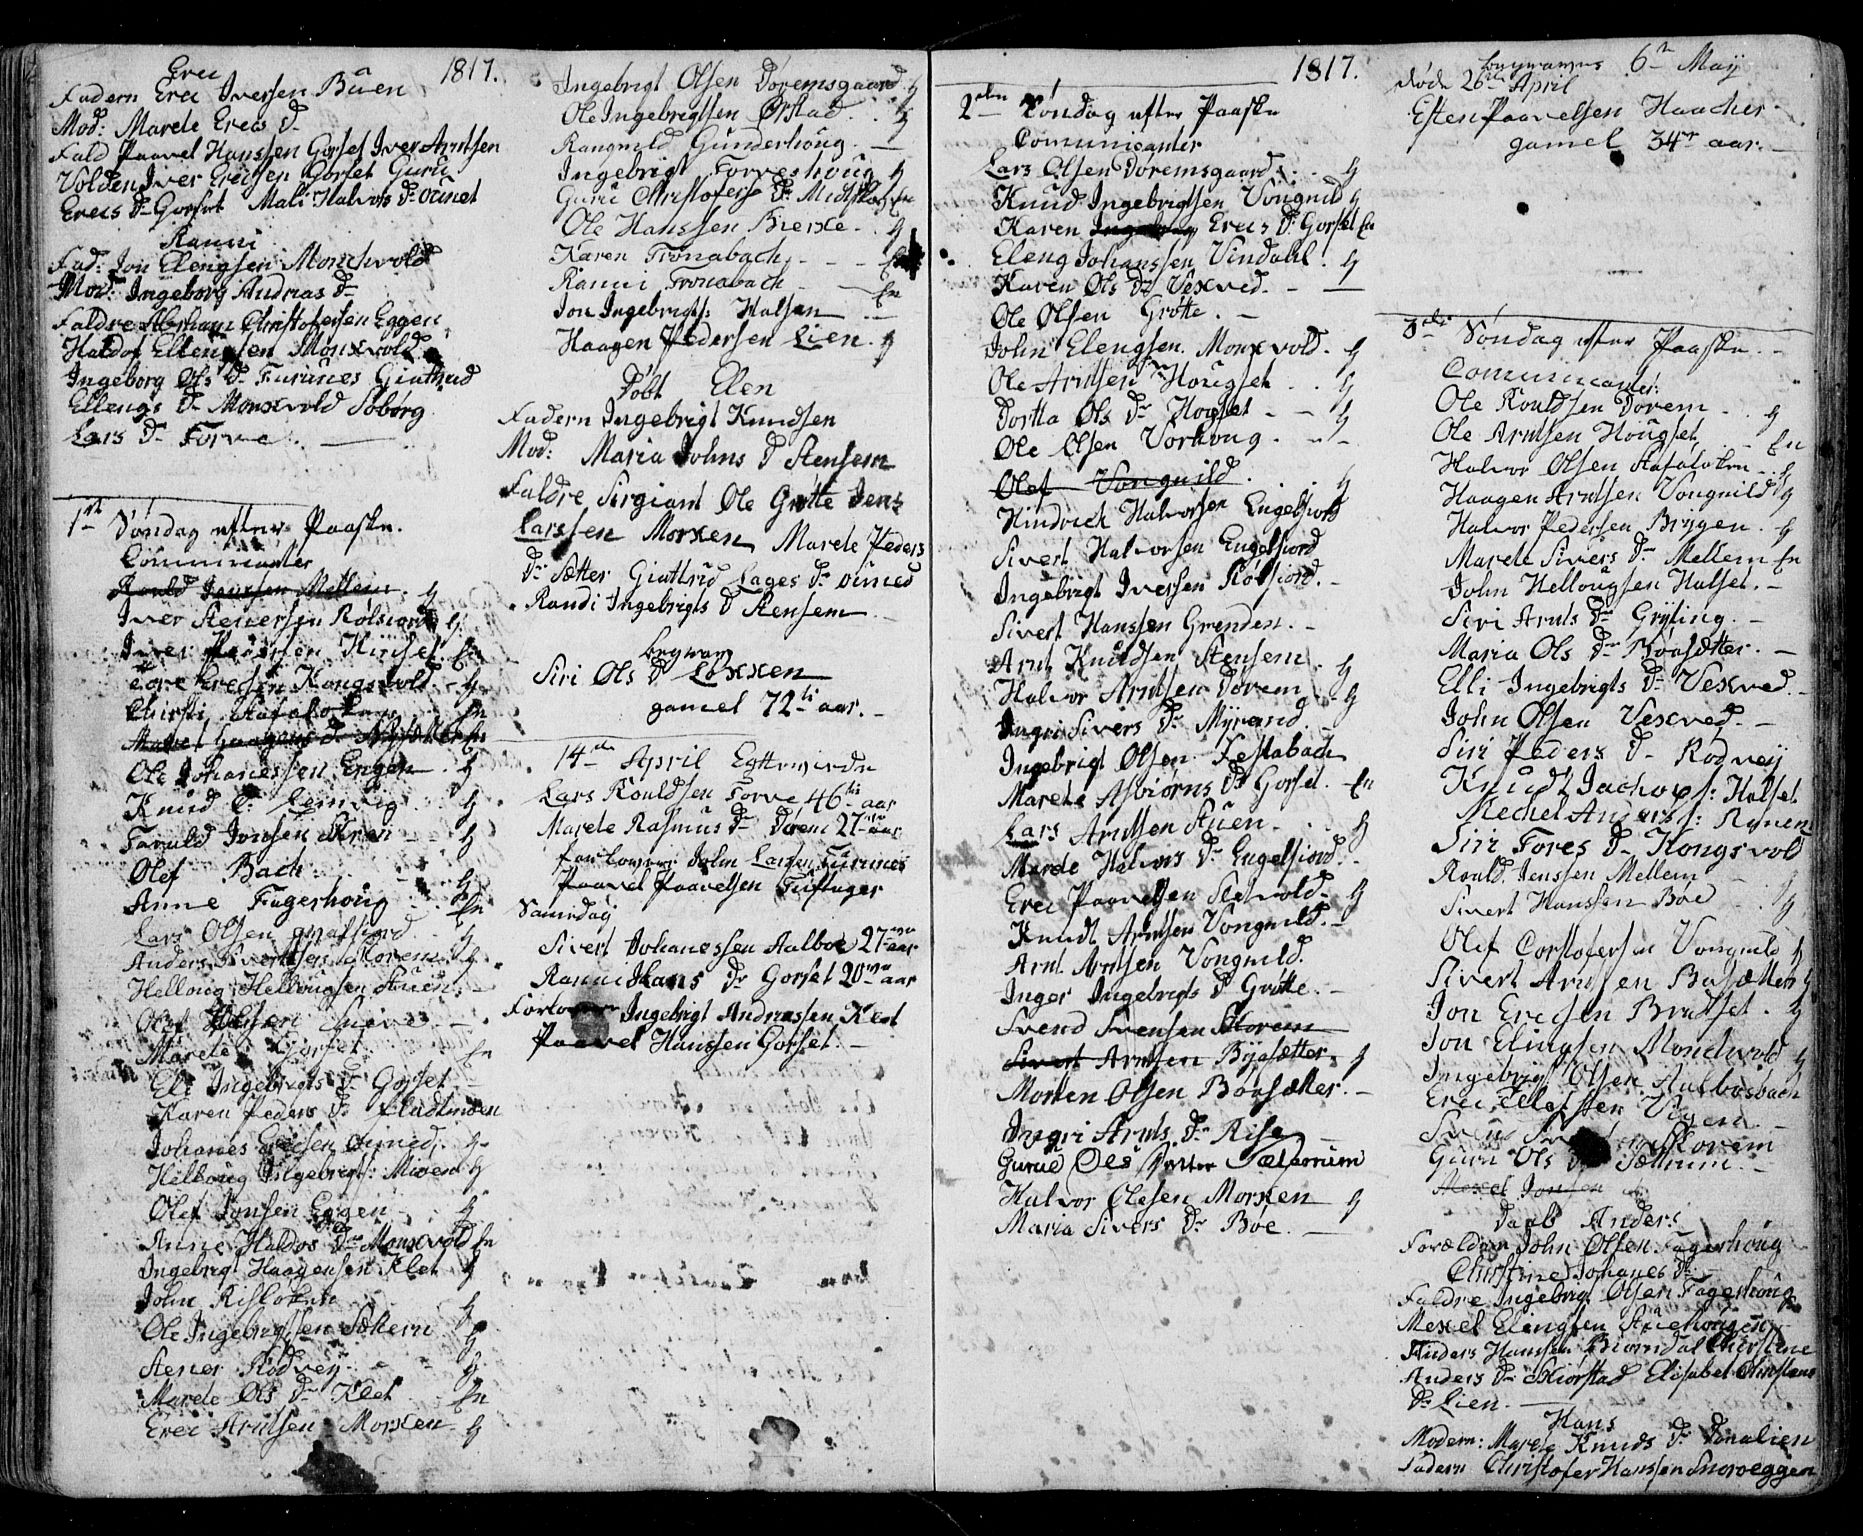 1817.
Erec
Fadern Erec Iversen Büen
Mod: Marete Erecs D
Fald Paavel Hanssen Gorset Iver Arntsen
Volden Iver Erecsen Gorset Guru
Erecs D Gorset Mali Halvors D ounet
Ranni
Fad: Jon Elengsen Monchvold
Mod: Ingeborg Andreas D
Faldre Abraham Christofersen Eggen
Haldof Ellengsen Monxvold
Ingeborg Ols D Furunes Giertrud
Ellengs D Monxvold Soborg
Lars D Forve
1ste Søndag efter Paaske.
Communicanter
Rould Jenssen Mellem
Iver Stenersen Rolsiord
Iver Pedersen Hinset
Tore Erecsen Kongsvold
Christi Stafaloken
Ole Johanessen Engen
Knud
Faruld Jonsen
Olef Bach
Anne Fagerhoug
Lars Olsen
Anders Sivertsen Storem
Helloug Hellougsen Stuen
Marete Gorset
Eli Ingebrigts D Gorset
Karen Peders D Fladtmoen
Johanes Erecsen ouned
Helloug Ingebrigts: Moen
Olef Jonsen Eggen
Anne Haldos D Monxvold En
Ingebrigt Haagensen Klet
John Risloken
Ole Ingebrigtsen Sætern
Stener Rodvej
Marete Ols D Klet En
Erec Arntsen Morxen
Ingebrigt Olsen Doremsgaard
Ole Ingebrigtsen Orstad
Rangnild Gunderhoug
Ingebrigt Forveshoug
Guru Christofers D Midtskog
Ole Hanssen Brexe
Karen Tronabach
Ranni Tronabach En
Jon Ingebrigts: Halsen
Haagen Pedersen Lien
Døbt Elen
Fadern Ingebrigt Knudsen
Mod: Maria Johns D Stensem
Faldre Sirgiant Ole Grøtte Jens
Larssen Morxen Marete Peders
D Sætter Giertrud Lages D ouned
Randi Ingebrigts D Stensem
begravet
Siri Ols D Loxxen
gamel 72 aar.
14de April Egteviede
Lars Rouldsen Forve 46 aar
Marete Rasmus D Dorem 27 aar
forlover John Larsen Furunes
Paavel Paavelsen
Samedag
Sivert Johanessen Aalboe 27 aar
Ranni Hans D Gorset 20 aar
Forlover Ingebrigt Andreassen Klet
Paavel Hanssen Gorset
1817.
2den Søndag efter Paaske
Communicanter
Lars Olsen Doremsgaard
Knud Ingebrigtsen Vongnild
Karen Erecs D Gorset En
Eleng Johanssen Vindahl
Karen Ols D Vexved
Ole Olsen Grøtte
John Elengsen Monxvold
Ole Arntsen Hougset
Dortta Ols D Hogset
Ole Olsen Vorhoug
Olef Vongnild
Hindrich Halvorsen Engelsiord
Sivert Halvorsen Engelsiord
Ingebrigt Iversen Rolsiord
Sivert Hanssen Grenden
Arnt Knudsen Stensem
Halvor Arntsen Dorem
Ingri Sivers D Myrand
Ingebrigt Olsen Festabach
Marete Asbiorns D Gorset En
Lars Arntsen Stuen
Marete Halvors D Engelsiord
Erec Paavelsen Setvold
Knudt Arntsen Vongnild
Arnt Arntsen Vongnild
Inger Ingebrigts D Grotte
Svend Svensen Storem
Sivert Arntsen Byasætter
Morten Olsen Boasæter
Ingri Arnts D Rise
Guru Ols Datter Sætterum
Halvor Olesen Morxen
Maria Sivers D Boe
begravens 6te May
død 26de April
Esten Paavelsen Haacher
gamel 34 aar.
3die Søndag efter Paaske
Communicanter:
Ole Rouldsen Dorem
Ole Arntsen Hougset En
Halvor Olsen Stafaloken
Haagen Arntsen Vongnild
Halvor Pedersen Brygen
Marete Sivers D Mellem En
John Hellougsen Halset
Siri Arnts D Gryting
Maria Ols D Boasætter
Elli Ingebrigts D Vexved
John Olsen Vexved
Siri Peders D Rodvey
Knudt Jachops: Halset
Mechel Anders: Rynen
Siri Tores D Kongsvold
Rould Jenssen Mellem
Sivert Hanssen Boe
Olef Corstofersen Vongnild
Sivert Arntsen Basætter
Jon Erecsen Brutset
Jon Elingsen Monchvold
Ingebrigt Olsen Aalbosbach
Storem
Guru Ols D Sætterum
Mexel Jonsen
Daab Anders
Forældren John Olsen Fagerhoug
Christine Johanes D
Faldre Ingebrigt Olsen Fagerhoug
Mexel Elengsen Stuehougen
Anders Hanssen Biorndal Christine
Anders D Skiorstad Elisabet Christens
D Lien.
Hans
Modern: Marete Knuds D Donalien
Fadern Christofer Hanssen Snoroeggen